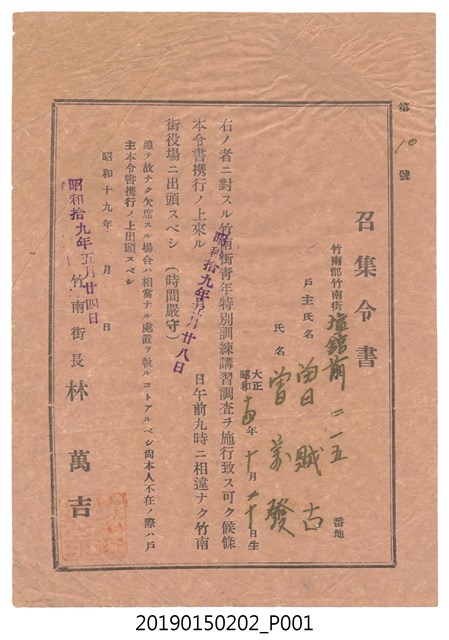 第 10 號
召集令書
竹南郡竹南街塩舘前二一五番地
戶主氏名 曾賊古
氏名 曾萬發
大正
昭和 年十月二十日生
右ノ者ニ對スル竹南街靑年特別訓練講習調査ヲ施行致ス可ク候條
本令書携行ノ上來ル昭和拾九年五月廿八日 日午前九時ニ相違ナク竹南
街役場ニ出頭スベシ(時間嚴守)
追テ故ナク欠席スル場合ハ相當ナル處置ヲ執ルコトアルベシ尙本人不在ノ際ハ戶
主本令書携行ノ上出頭スベシ
昭和十九年 月 日
昭和拾九年五月廿四日
竹南街長 林萬吉
20190150202_P001